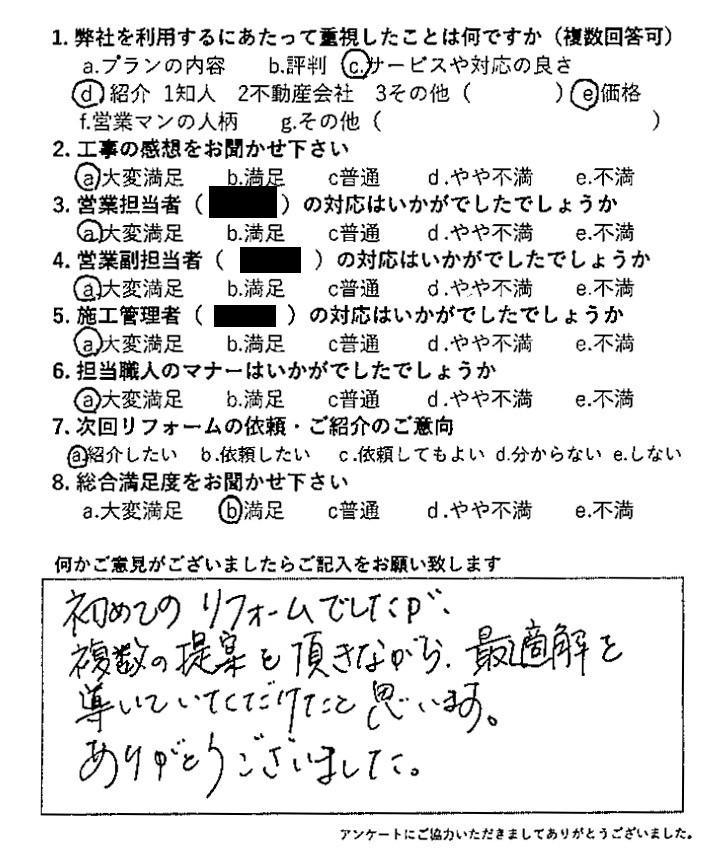 1. 弊社を利用するにあたって重視したことは何ですか（複数回答可）
a.プランの内容 b.評判 c.サービスや対応の良さ
d 紹介 1知人 2不動産会社 3その他（ ） e価格
f.営業マンの人柄 g.その他（ ）
2. 工事の感想をお聞かせ下さい
a大変満足 b.満足 c普通 d.やや不満 e.不満
3. 営業担当者（ ）の対応はいかがでしたでしょうか
a大変満足 b.満足 c普通 d.やや不満 e.不満
4. 営業副担当者（ ）の対応はいかがでしたでしょうか
a大変満足 b.満足 c普通 d.やや不満 e.不満
5. 施工管理者（ ）の対応はいかがでしたでしょうか
a大変満足 b.満足 c普通 d.やや不満 e.不満
6. 担当職人のマナーはいかがでしたでしょうか
a大変満足 b.満足 c普通 d.やや不満 e.不満
7. 次回リフォームの依頼・ご紹介のご意向
a紹介したい b.依頼したい c.依頼してもよい d.分からない e.しない
8. 総合満足度をお聞かせ下さい
a.大変満足 b満足 c普通 d.やや不満 e.不満
何かご意見がございましたらご記入をお願い致します
初めてのリフォームでしたが、
複数の提案を頂きながら、最適解を
導いていただけたこと思います。
ありがとうございました。
アンケートにご協力いただきましてありがとうございました。